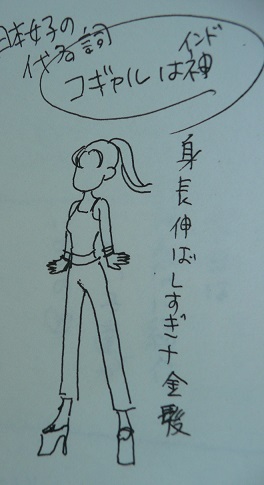 日本女子の
代名詞
インド
コギャルは神
身長伸ばしすぎ+金髪